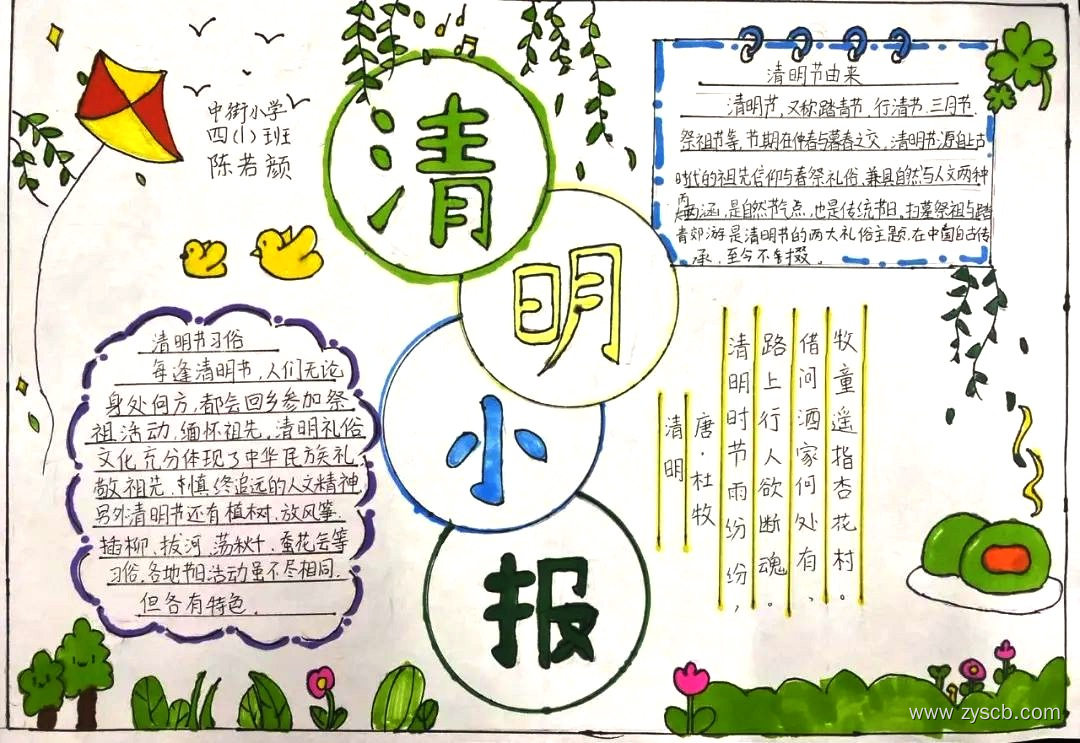 清
明
小
报
中街小学
四(1)班
陈若颜
清明节由来
清明节,又称踏青节、行清节、三月节、
祭祖节等,节期在仲春与暮春之交。清明节源自上古
时代的祖先信仰与春祭礼俗,兼具自然与人文两种
内涵,是自然节气点,也是传统节日,扫墓祭祖与踏
青郊游是清明节的两大礼俗主题,在中国自古传
承,至今不辍。
清明节习俗
每逢清明节,人们无论
身处何方,都会回乡参加祭
祖活动,缅怀祖先,清明礼俗
文化充分体现了中华民族礼
敬祖先、慎终追远的人文精神,
另外清明节还有植树、放风筝、
插柳、拔河、荡秋千、蚕花会等
习俗,各地节日活动虽不尽相同,
但各有特色。
清明
唐·杜牧
清明时节雨纷纷,
路上行人欲断魂。
借问酒家何处有,
牧童遥指杏花村。
www.zyscb.com